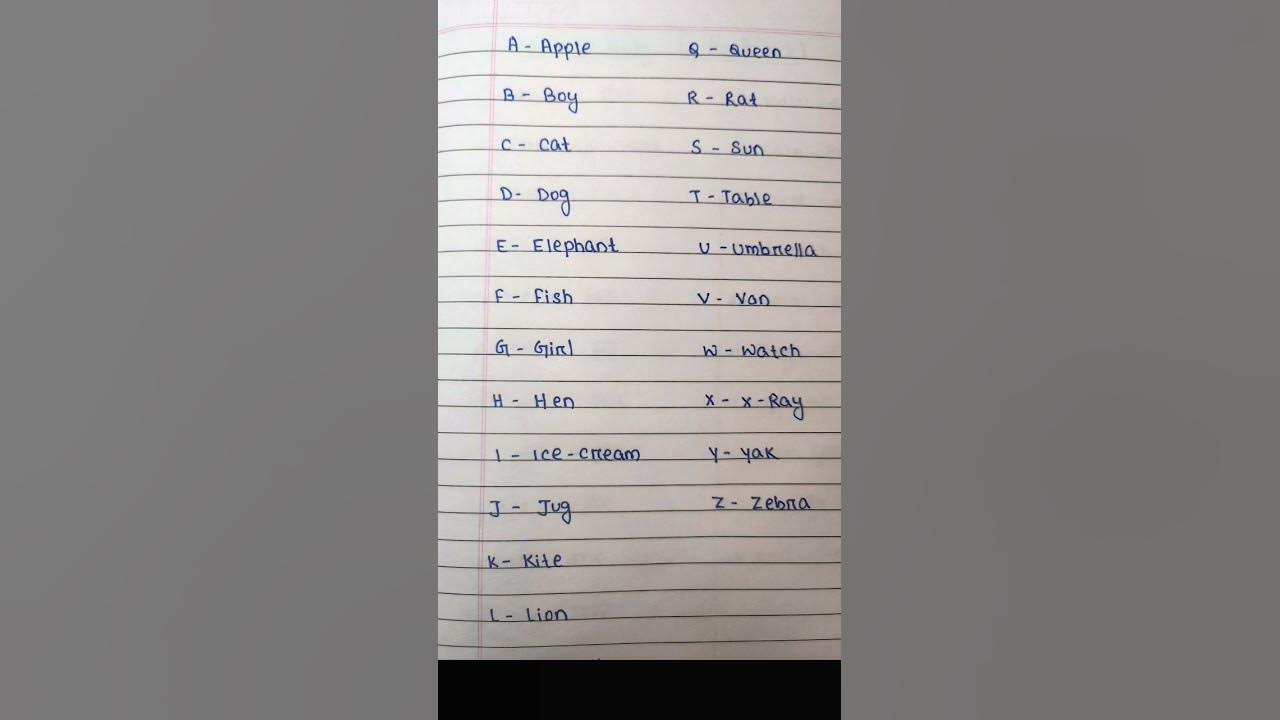 A - Apple
B - Boy
C - Cat
D - Dog
E - Elephant
F - Fish
G - Girl
H - Hen
I - Ice-cream
J - Jug
K - Kite
L - Lion
Q - Queen
R - Rat
S - Sun
T - Table
U - Umbrella
V - Van
W - Watch
X - X-Ray
Y - Yak
Z - Zebra